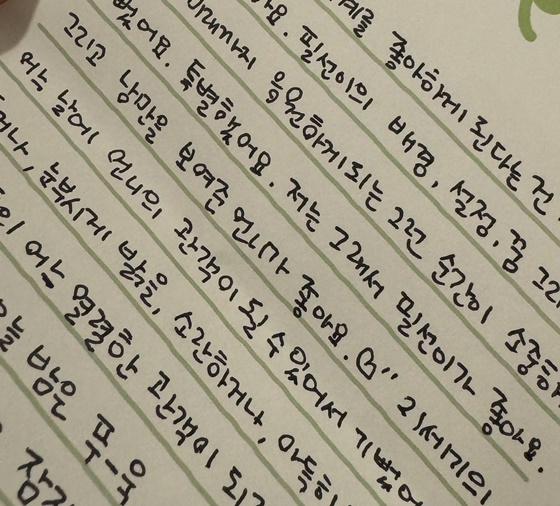 게를 좋아하게 된다는 건
요. 필선이의 배경, 설정, 꿈 그
미래까지 응원하게되는 그런 순간이 소중하
어요. 특별했어요. 저는 그래서 필선이가 좋아요.
그리고 낭만을 보여준 언니가 좋아요. 21세기의
어느 날에 언니의 관객이 될 수 있어서 기뻤어
눈부시게 밝을, 소란하거나, 어둑하
의 어느 열렬한 관객이 되기
늘 밤은 푸우